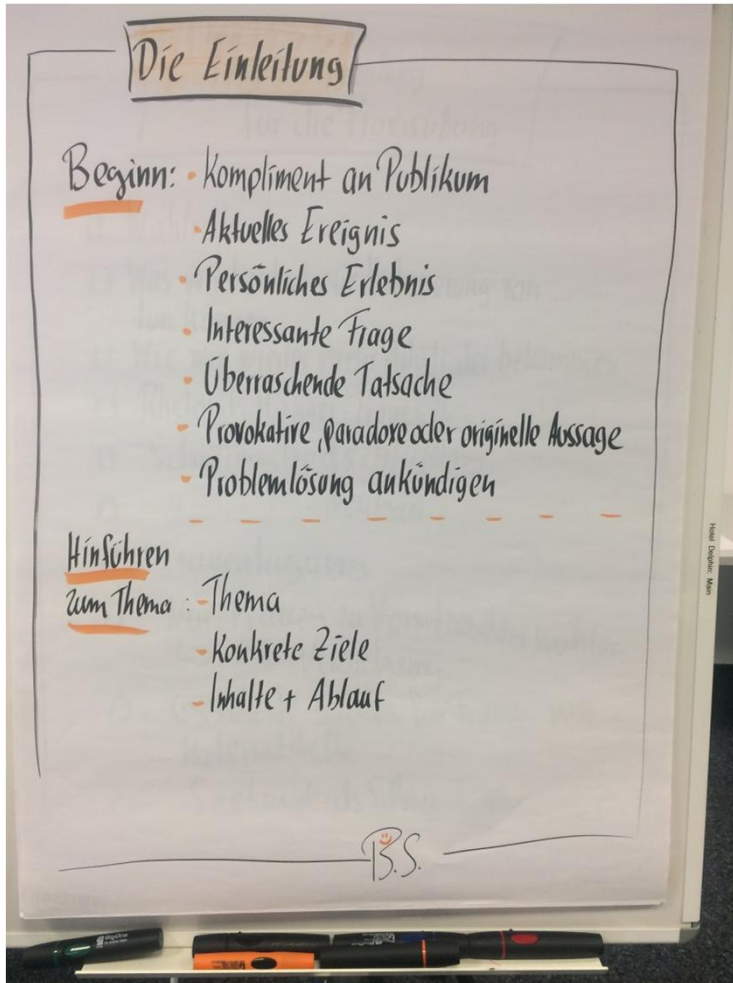 Die Einleitung
Beginn: • Kompliment an Publikum
• Aktuelles Ereignis
• Persönliches Erlebnis
• Interessante Frage
• Überraschende Tatsache
• Provokative, paradoxe oder originelle Aussage
• Problemlösung ankündigen
Hinführen
zum Thema: - Thema
- Konkrete Ziele
- Inhalte + Ablauf
B.S.
Hotel Delphin: Main